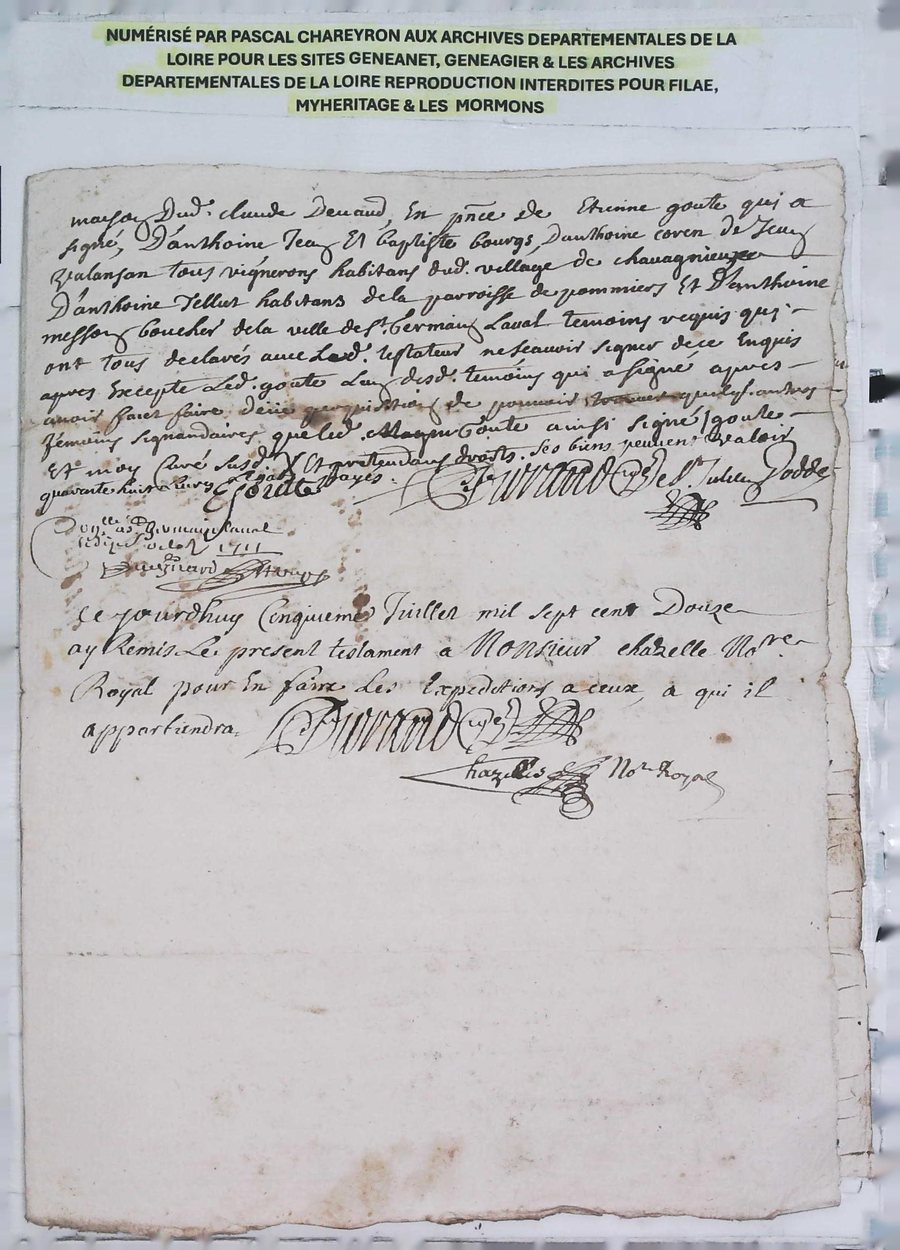 NUMÉRISÉ PAR PASCAL CHAREYRON AUX ARCHIVES DEPARTEMENTALES DE LA
LOIRE POUR LES SITES GENEANET, GENEAGIER & LES ARCHIVES
DEPARTEMENTALES DE LA LOIRE REPRODUCTION INTERDITES POUR FILAE,
MYHERITAGE & LES MORMONS
maison dud. claude Devaud, En pnce de Etienne goute qui a
signé, D'anthoine Jean Et baptiste bourgs, D'anthoine coren de Jean
valansan tous vignerons habitans dud. village de chavagnieux
D'anthoine Tellut habitans de la parroisse de pommiers Et D'anthoine
messon boucher de la ville de St. Germain Laval temoins requis qui
ont tous declarés avec Led. testateur ne scavoir signer de ce Enquis
apres Excepte Led. goute Lun desd. temoins qui a signé apres
avoir fait faire de pouvoir trouver quelqs. autres
temoins signandaires que led. Goute ainsi signé goute
Et moy Curé susd. Et pretendans droits. ses biens peuvent valoir
quarante huit livres payes.
Durand curé De St. Julien Dodde
germain Laval
1711
ce jourdhuy Cinquieme Juillet mil sept cent Douze
ay Remis Le present testament a Monsieur chazelle Nore.
Royal pour En faire Les Expeditions a ceux, a qui il
appartiendra.
Durand curé
Chazelles Nore Royal